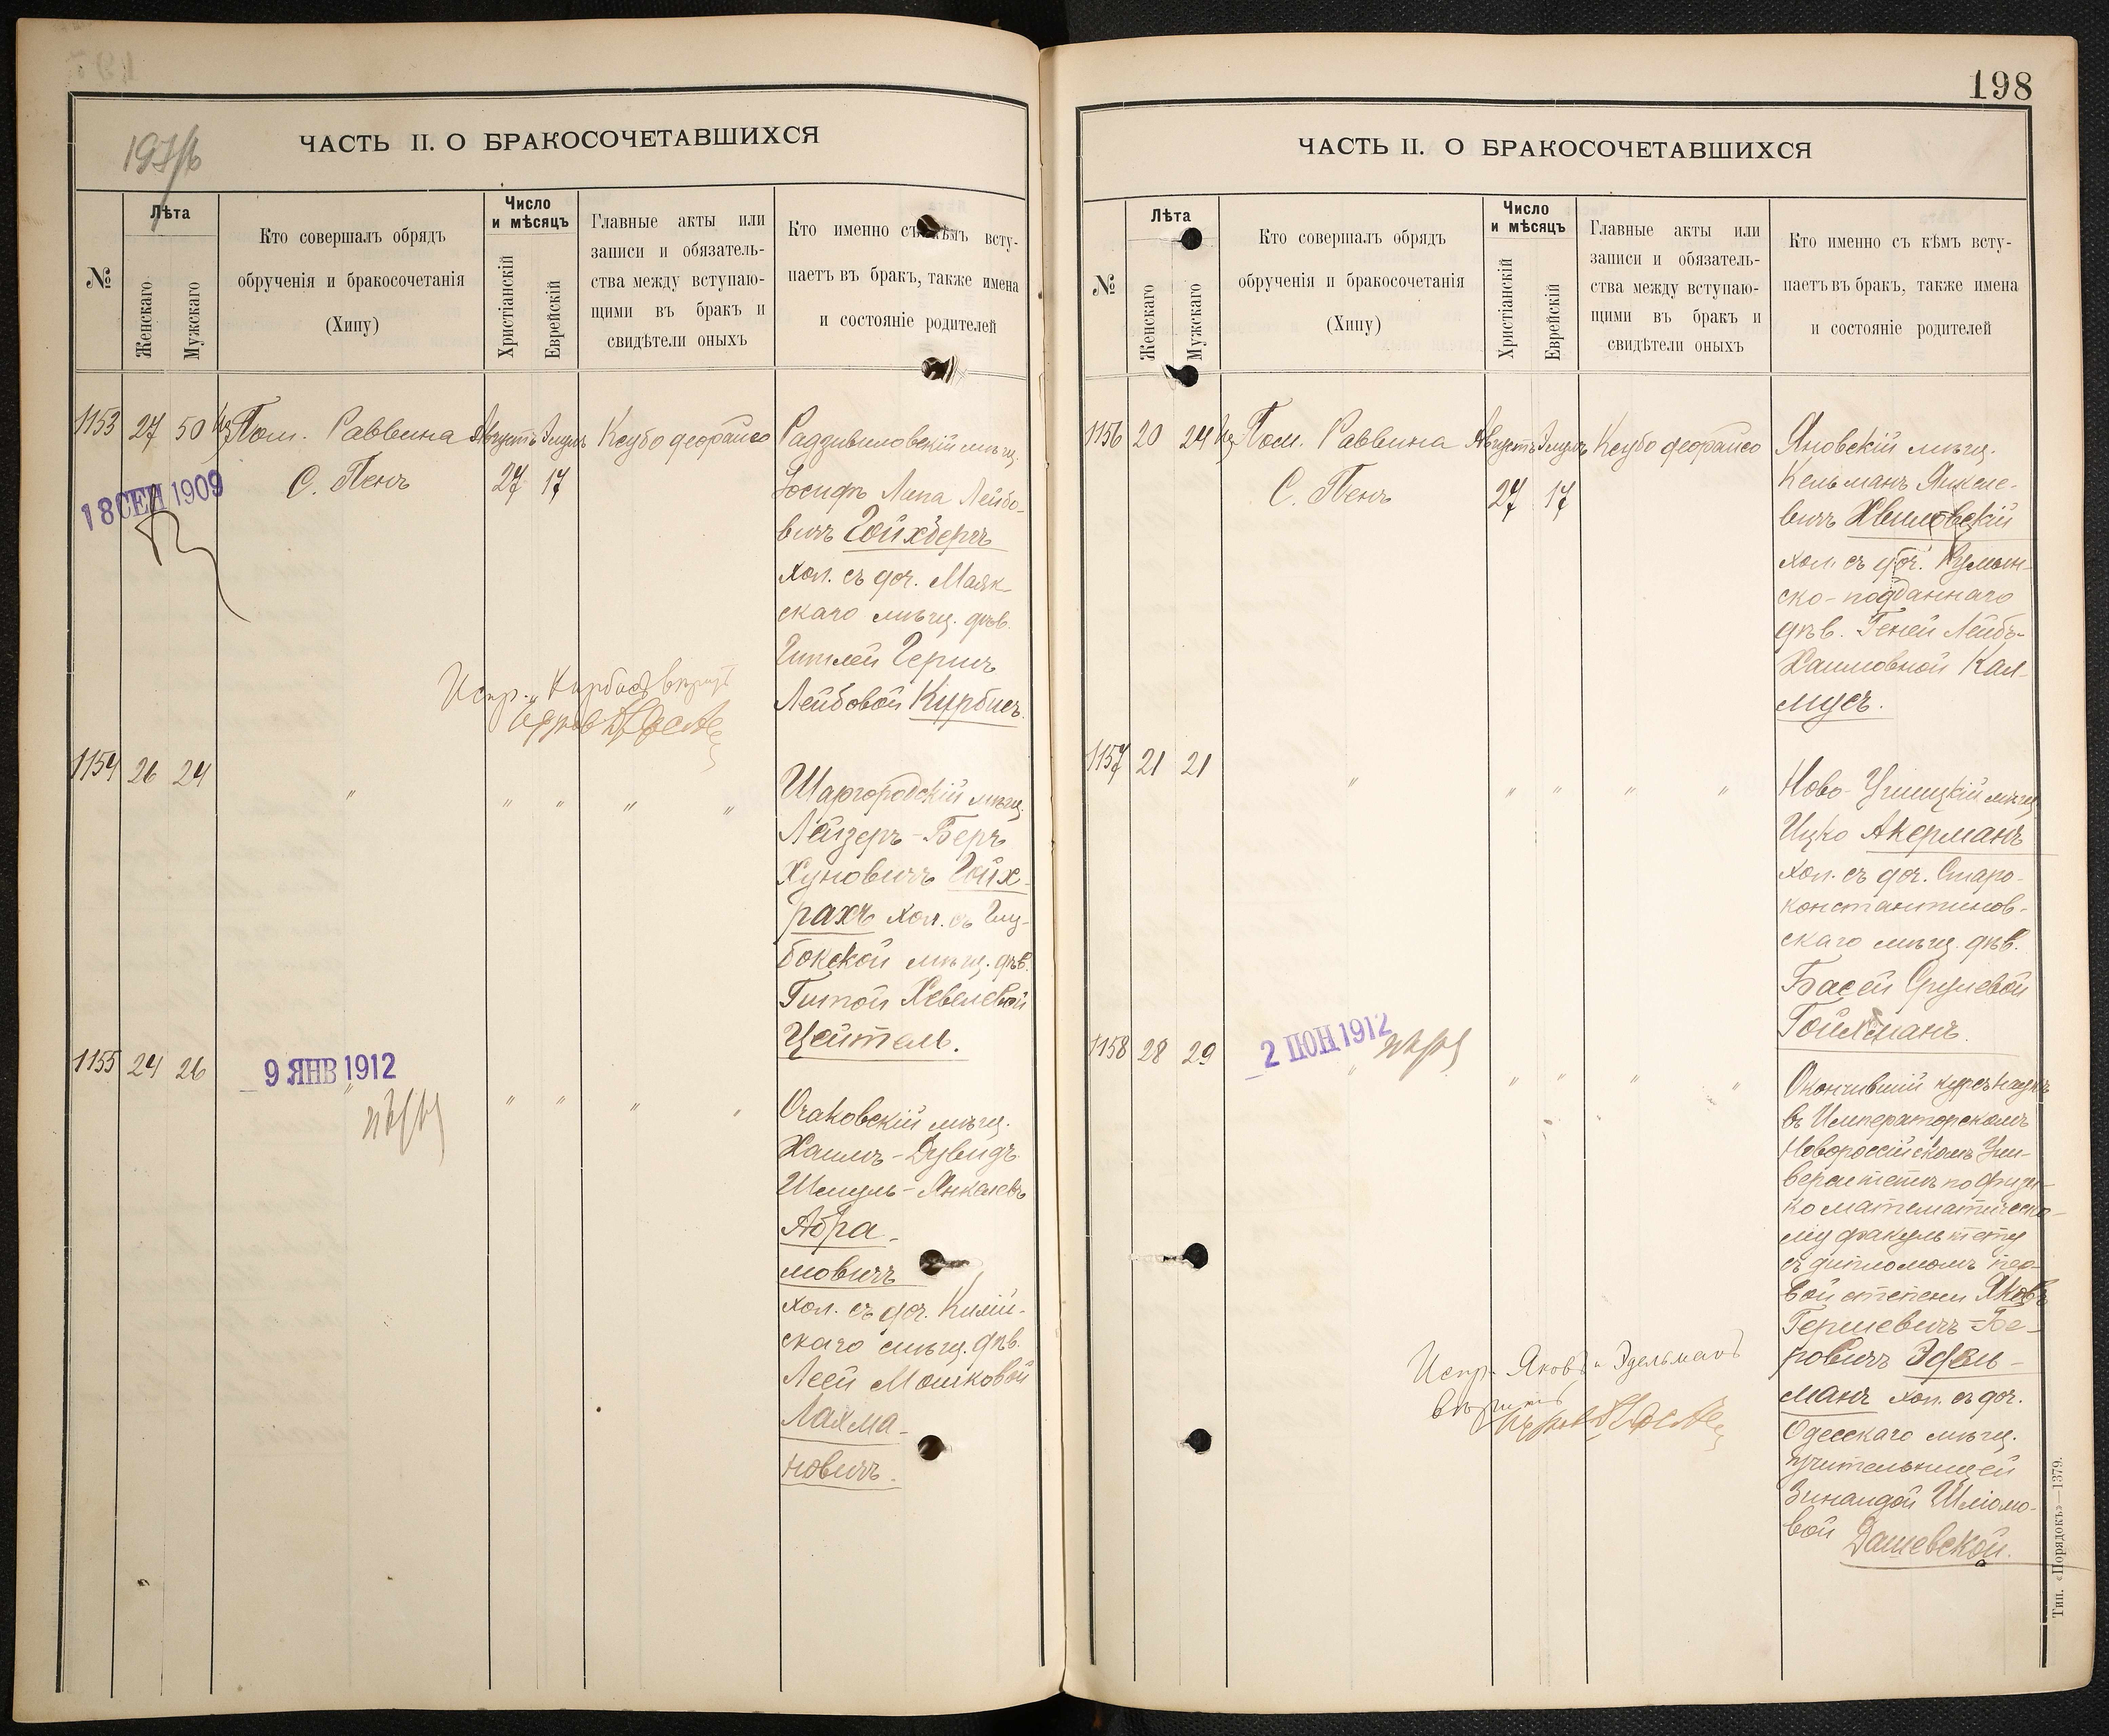 197/б
ЧАСТЬ II. О БРАКОСОЧЕТАВШИХСЯ
№
Лѣта
Женскаго
Мужскаго
Кто совершалъ обрядъ
обрученія и бракосочетанія
(Хипу)
Число
и мѣсяцъ
Христіанскій
Еврейскій
Главные акты или
записи и обязатель-
ства между вступаю-
щими въ бракъ и
свидѣтели оныхъ
Кто именно съ кѣмъ всту-
паетъ въ бракъ, также имена
и состояніе родителей
1153 27 50 Пом. Раввина Августъ Элулъ Ксубо деорайсо
С. Пенъ 27 17
18 СЕН 1909
Раддивиловскій мѣщ.
Іосифъ Липа Лейбо-
вичъ Гойхбергъ
хол. съ доч. Маяк-
скаго мѣщ. дѣв.
Гитлей Гершъ
Лейбовой Курбисъ.
Испр. „Курбисъ" вѣритъ
1154 26 24 " " " " "
Шаргородскій мѣщ.
Лейзеръ-Беръ
Хуновичъ Гойх-
рахъ хол. съ Глу-
бокской мѣщ. дѣв.
Гитой Хевелевой
Цейтель.
1155 24 26 " " " " "
9 ЯНВ 1912
Очаковскій мѣщ.
Хаимъ-Дувидъ
Шмуль-Янкелевъ
Абра-
мовичъ
хол. съ доч. Килій-
скаго мѣщ. дѣв.
Леей Мошковой
Лахма-
новичъ.
198
ЧАСТЬ II. О БРАКОСОЧЕТАВШИХСЯ
№
Лѣта
Женскаго
Мужскаго
Кто совершалъ обрядъ
обрученія и бракосочетанія
(Хипу)
Число
и мѣсяцъ
Христіанскій
Еврейскій
Главные акты или
записи и обязатель-
ства между вступаю-
щими въ бракъ и
свидѣтели оныхъ
Кто именно съ кѣмъ всту-
паетъ въ бракъ, также имена
и состояніе родителей
1156 20 24 Пом. Раввина Августъ Элулъ Ксубо деорайсо
С. Пенъ 27 17
Яновскій мѣщ.
Кельманъ Янкеле-
вичъ Хвиловскій
хол. съ доч. Румын-
ско-подданнаго
дѣв. Геней Лейбъ-
Хаимовной Кал-
мусъ.
1157 21 21 " " " " "
Ново-Ушицкій мѣщ.
Ицко Акерманъ
хол. съ доч. Старо-
константинов-
скаго мѣщ. дѣв.
Басей Срулевой
Гойхманъ.
1158 28 29 " " " " "
2 ІЮН 1912
Окончившій курсъ наукъ
въ Императорскомъ
Новороссійскомъ Уни-
верситетѣ по физи-
ко математическо-
му факультету
съ дипломомъ пер-
вой степени Яковъ
Гершевичъ-Бе-
ровичъ Эдель-
манъ хол. съ доч.
Одесскаго мѣщ.
учительницей
Зинаидой Шліомо-
вой Дашевской.
Испр. Яковъ „Эдельманъ
вѣритъ
Тип. «Порядокъ»—1379.